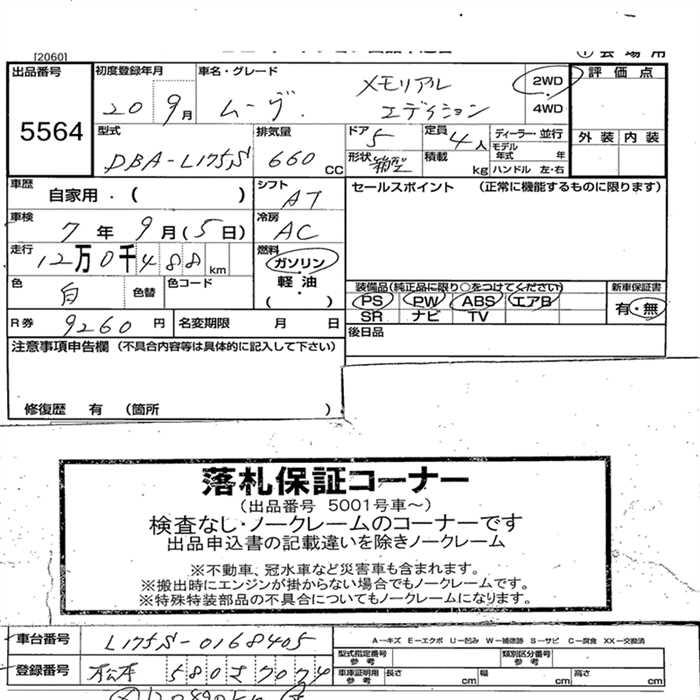 [2060]
出品番号 初度登録年月 車名・グレード 評価点
5564 20 9月 ムーヴ. メモリアル エディション 2WD 4WD
外装 内装
型式 排気量 ドア 定員 ディーラー 並行
DBA-L175S 660 CC 5 4人 モデル年式 年
形状 箱型 積載 kg ハンドル 左・右
車歴 自家用・( ) シフト AT セールスポイント (正常に機能するものに限ります)
車検 7年9月(5日) 冷房 AC
走行 12万0千488km 燃料 ガソリン 軽油 ( )
色 白 色替 色コード
装備品(純正品に限り○をつけてください) 新車保証書
PS PW ABS エアB 有・無
SR ナビ TV
R券 9260円 名変期限 月 日 後日品
注意事項申告欄 (不具合内容等は具体的に記入して下さい)
修復歴 有 (箇所 )
落札保証コーナー
(出品番号 5001号車~)
検査なし・ノークレームのコーナーです
出品申込書の記載違いを除きノークレーム
※不動車、冠水車など災害車も含まれます。
※搬出時にエンジンが掛からない場合でもノークレームです。
※特殊特装部品の不具合についてもノークレームになります。
車台番号 L175S-0168405 A-キズ E-エクボ U-凹み W-補修跡 S-サビ C-腐食 XX-交換済
型式指定番号 参考 類別区分番号 参考
登録番号 松本 580 す 7074 車庫証明用 参考 長さ cm 幅 cm 高さ cm